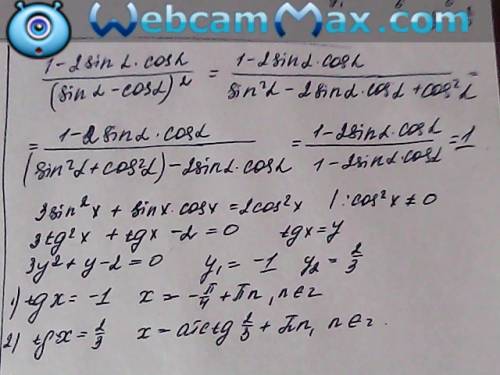 WebcamMax.com
(1-2sinα·cosα)/(sinα-cosα)² = (1-2sinα·cosα)/(sin²α-2sinα·cosα+cos²α)
= (1-2sinα·cosα)/((sin²α+cos²α)-2sinα·cosα) = (1-2sinα·cosα)/(1-2sinα·cosα) = 1
3sin²x + sinx·cosx = 2cos²x |:cos²x ≠ 0
3tg²x + tgx - 2 = 0 tgx = y
3y² + y - 2 = 0 y₁ = -1 y₂ = 2/3
1) tgx = -1 x = -π/4 + πn, n∈z
2) tgx = 2/3 x = arctg 2/3 + πn, n∈z.